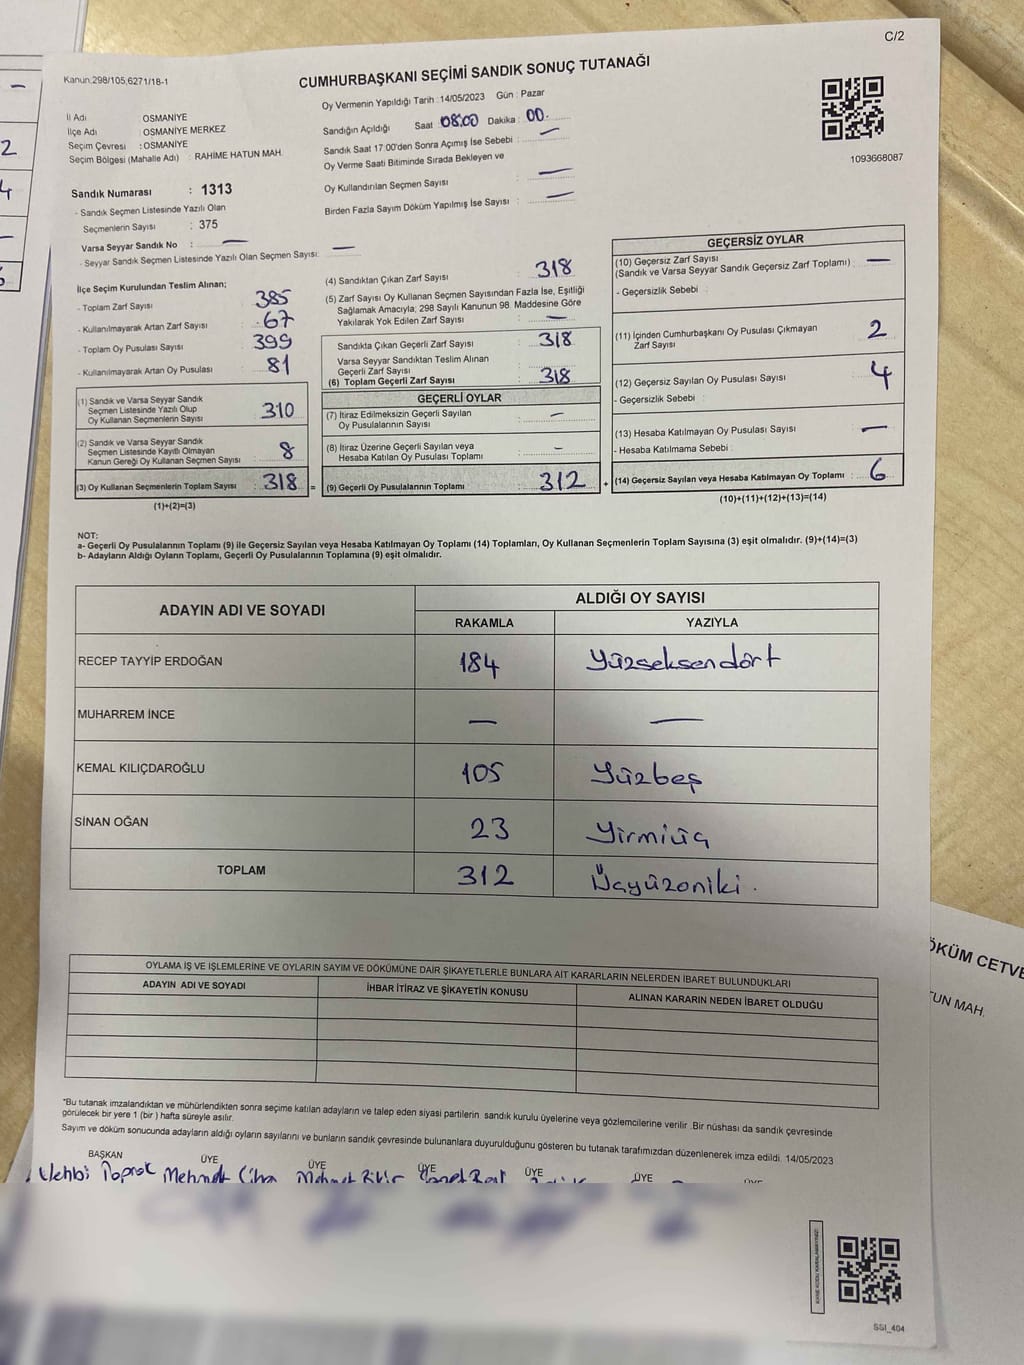 C/2
Kanun:298/105,6271/18-1
CUMHURBAŞKANI SEÇİMİ SANDIK SONUÇ TUTANAĞI
Oy Vermenin Yapıldığı Tarih : 14/05/2023 Gün : Pazar
İl Adı OSMANİYE
İlçe Adı : OSMANİYE MERKEZ
Seçim Çevresi : OSMANİYE
Seçim Bölgesi (Mahalle Adı) : RAHİME HATUN MAH.
Sandığın Açıldığı Saat : 08:00 Dakika : 00.
Sandık Saat 17:00'den Sonra Açımış İse Sebebi : —
Oy Verme Saati Bitiminde Sırada Bekleyen ve
Oy Kullandırılan Seçmen Sayısı : —
Birden Fazla Sayım Döküm Yapılmış İse Sayısı : —
1093668087
Sandık Numarası : 1313
- Sandık Seçmen Listesinde Yazılı Olan
Seçmenlerin Sayısı : 375
Varsa Seyyar Sandık No : —
- Seyyar Sandık Seçmen Listesinde Yazılı Olan Seçmen Sayısı: —
İlçe Seçim Kurulundan Teslim Alınan;
- Toplam Zarf Sayısı : 385
- Kullanılmayarak Artan Zarf Sayısı : 67
- Toplam Oy Pusulası Sayısı : 399
- Kullanılmayarak Artan Oy Pusulası : 81
(1) Sandık ve Varsa Seyyar Sandık
Seçmen Listesinde Yazılı Olup
Oy Kullanan Seçmenlerin Sayısı : 310
(2) Sandık ve Varsa Seyyar Sandık
Seçmen Listesinde Kayıtlı Olmayan
Kanun Gereği Oy Kullanan Seçmen Sayısı : 8
(3) Oy Kullanan Seçmenlerin Toplam Sayısı : 318 =
(1)+(2)=(3)
(4) Sandıktan Çıkan Zarf Sayısı : 318
(5) Zarf Sayısı Oy Kullanan Seçmen Sayısından Fazla İse, Eşitliği
Sağlamak Amacıyla; 298 Sayılı Kanunun 98. Maddesine Göre
Yakılarak Yok Edilen Zarf Sayısı : —
Sandıkta Çıkan Geçerli Zarf Sayısı : 318
Varsa Seyyar Sandıktan Teslim Alınan
Geçerli Zarf Sayısı :
(6) Toplam Geçerli Zarf Sayısı : 318
GEÇERLİ OYLAR
(7) İtiraz Edilmeksizin Geçerli Sayılan
Oy Pusulalarının Sayısı : —
(8) İtiraz Üzerine Geçerli Sayılan veya
Hesaba Katılan Oy Pusulası Toplamı : —
(9) Geçerli Oy Pusulalarının Toplamı : 312 +
GEÇERSİZ OYLAR
(10) Geçersiz Zarf Sayısı
(Sandık ve Varsa Seyyar Sandık Geçersiz Zarf Toplamı) : —
- Geçersizlik Sebebi :
(11) İçinden Cumhurbaşkanı Oy Pusulası Çıkmayan
Zarf Sayısı : 2
(12) Geçersiz Sayılan Oy Pusulası Sayısı : 4
- Geçersizlik Sebebi :
(13) Hesaba Katılmayan Oy Pusulası Sayısı : —
- Hesaba Katılmama Sebebi :
(14) Geçersiz Sayılan veya Hesaba Katılmayan Oy Toplamı : 6
(10)+(11)+(12)+(13)=(14)
NOT:
a- Geçerli Oy Pusulalarının Toplamı (9) ile Geçersiz Sayılan veya Hesaba Katılmayan Oy Toplamı (14) Toplamları, Oy Kullanan Seçmenlerin Toplam Sayısına (3) eşit olmalıdır. (9)+(14)=(3)
b- Adayların Aldığı Oyların Toplamı, Geçerli Oy Pusulalarının Toplamına (9) eşit olmalıdır.
ADAYIN ADI VE SOYADI ALDIĞI OY SAYISI
RAKAMLA YAZIYLA
RECEP TAYYİP ERDOĞAN 184 Yüzseksendört
MUHARREM İNCE — —
KEMAL KILIÇDAROĞLU 105 Yüzbeş
SİNAN OĞAN 23 Yirmiüç
TOPLAM 312 Üçyüzoniki.
OYLAMA İŞ VE İŞLEMLERİNE VE OYLARIN SAYIM VE DÖKÜMÜNE DAİR ŞİKAYETLERLE BUNLARA AİT KARARLARIN NELERDEN İBARET BULUNDUKLARI
ADAYIN ADI VE SOYADI İHBAR İTİRAZ VE ŞİKAYETİN KONUSU ALINAN KARARIN NEDEN İBARET OLDUĞU
*Bu tutanak imzalandıktan ve mühürlendikten sonra seçime katılan adayların ve talep eden siyasi partilerin sandık kurulu üyelerine veya gözlemcilerine verilir .Bir nüshası da sandık çevresinde
görülecek bir yere 1 (bir) hafta süreyle asılır.
Sayım ve döküm sonucunda adayların aldığı oyların sayılarını ve bunların sandık çevresinde bulunanlara duyurulduğunu gösteren bu tutanak tarafımızdan düzenlenerek imza edildi. 14/05/2023
BAŞKAN ÜYE ÜYE ÜYE ÜYE ÜYE ÜYE
Vehbi Toprak Mehmet
SSI_404
ÖKÜM CETVE
TUN MAH.